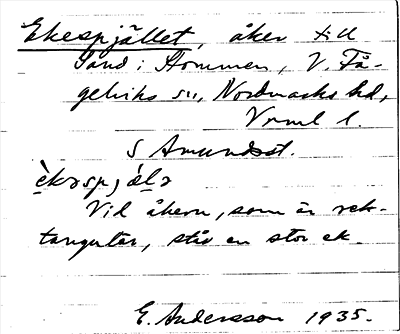 Ekespjället, åker till
Sand i Hommen, V. Få-
gelviks sn, Nordmarks hd,
Vrml l.
S Amundsst.
Vid åkern, som är rek-
tangulär, står en stor ek.
E. Andersson 1935.